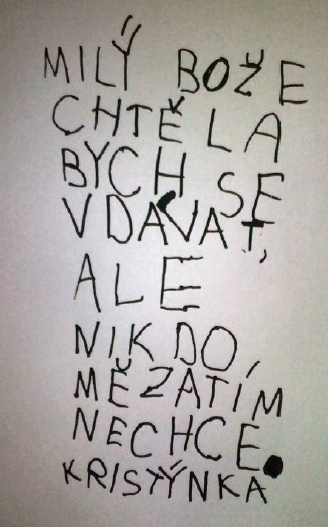 MILÝ BOŽE
CHTĚLA
BYCH SE
VDÁVAT,
ALE
NIKDO,
MĚ ZATIM
NECHCE.
KRISTÝNKA